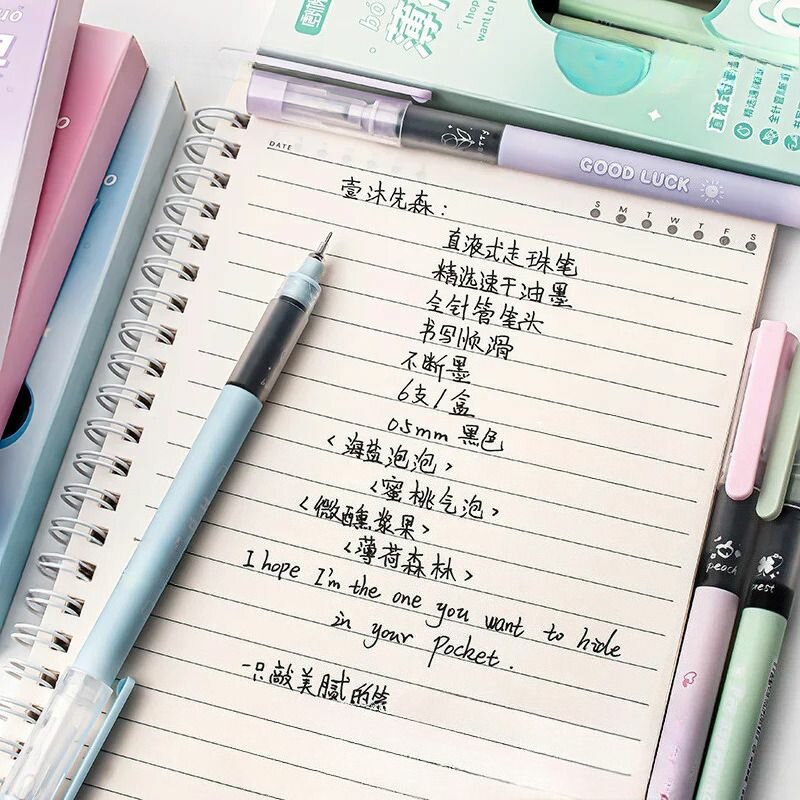 薄荷
I hope
want to h
直液式
精选速
全针管
erry
GOOD LUCK
DATE
S M T W T F S
壹沐先森:
直液式走珠笔
精选速干油墨
全针管笔头
书写顺滑
不断墨
6支1盒
05mm 黑色
<海盐泡泡>
<蜜桃气泡>
<微醺浆果>
<薄荷森林>
I hope I'm the one you want to hide
in your Pocket.
一只敲美腻的
peach
orest